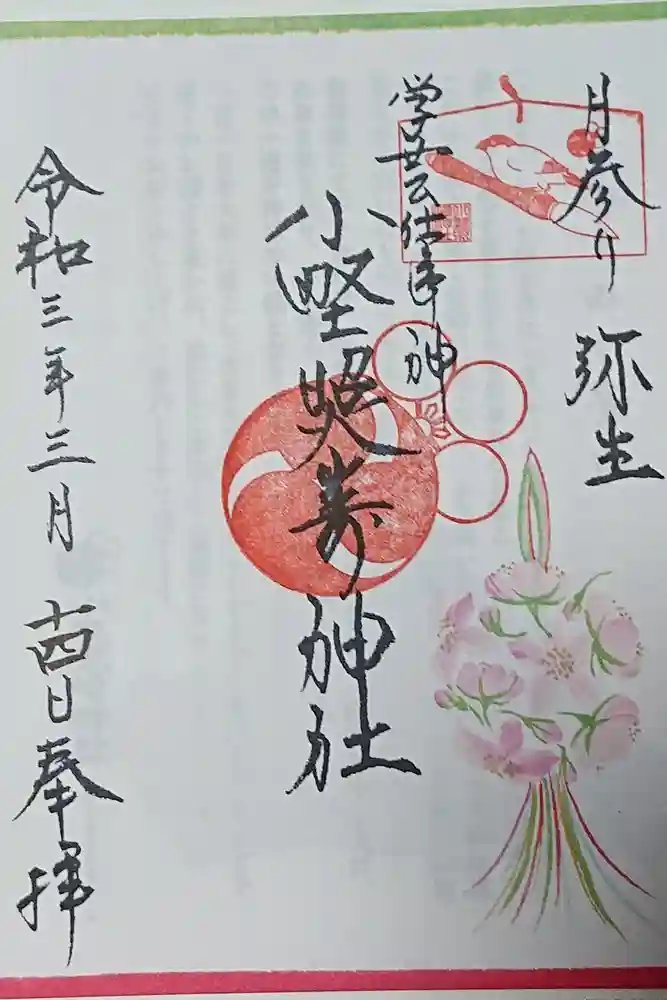 月参り 弥生
学芸仕事神
小野照崎神社
令和三年三月 十四日 奉拝